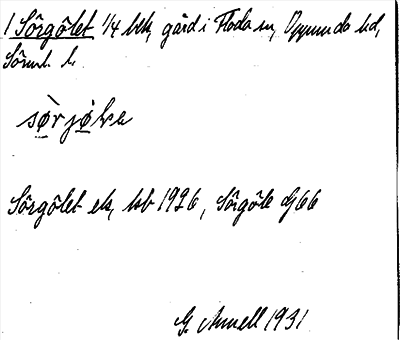 1 Sörgölet 1/4 hek, gård i Floda sn, Oppunda hd,
Sörml. l.
sörjöḷe
Sörgölet ek, kb 1926, Sörgöle Gj 66
G. Arnell 1931